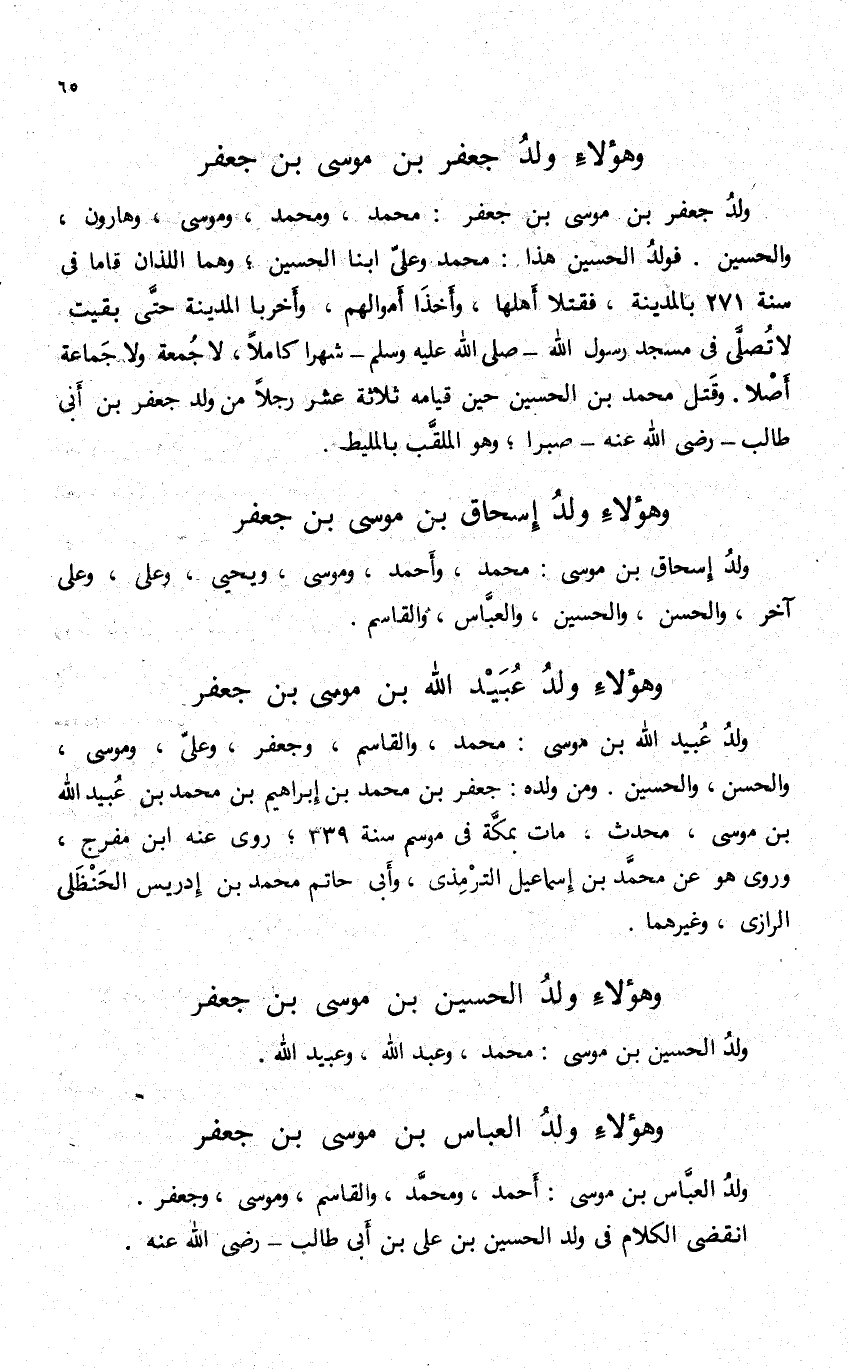 ٦٥
وهؤلاءِ ولدُ جعفر بن موسى بن جعفر
ولدُ جعفر بن موسى بن جعفر : محمد ، ومحمد ، وموسى ، وهارون ،
والحسين . فولدُ الحسين هذا : محمد وعلىّ ابنا الحسين ؛ وهما اللذان قاما فى
سنة ٢٧١ بالمدينة ، فقتلا أَهلها ، وأَخذَا أَموالهم ، وأَخربا المدينة حتَّى بقيت
لا تُصلَّى فى مسجد رسول الله – صلى الله عليه وسلم – شهرا كاملاً ، لا جُمعة ولا جَماعة
أَصْلا . وقَتل محمد بن الحسين حين قيامه ثلاثة عشر رجلاً من ولد جعفر بن أَبى
طالب – رضى الله عنه – صبرا ؛ وهو الملقَّب بالمليط .
وهؤلاءِ ولدُ إِسحاق بن موسى بن جعفر
ولدُ إِسحاق بن موسى : محمد ، وأَحمد ، وموسى ، ويحيى ، وعلى ، وعلى
آخر ، والحسن ، والحسين ، والعبَّاس ، والقاسم .
وهؤلاءِ ولدُ عُبَيْد الله بن موسى بن جعفر
ولدُ عُبيد الله بن موسى : محمد ، والقاسم ، وجعفر ، وعلىّ ، وموسى ،
والحسن ، والحسين . ومن ولده : جعفر بن محمد بن إِبراهيم بن محمد بن عُبيد الله
بن موسى ، محدث ، مات بمكَّة فى موسم سنة ٣٣٩ ؛ روى عنه ابن مفرج ،
وروى هو عن محمَّد بن إِسماعيل الترْمِذى ، وأَبى حاتم محمد بن إِدريس الحَنْظَلى
الرازى ، وغيرهما .
وهؤلاءِ ولدُ الحسين بن موسى بن جعفر
ولدُ الحسين بن موسى : محمد ، وعبد الله ، وعبيد الله .
وهؤلاءِ ولدُ العباس بن موسى بن جعفر
ولدُ العبَّاس بن موسى : أَحمد ، ومحمَّد ، والقاسم ، وموسى ، وجعفر .
انقضى الكلام فى ولد الحسين بن على بن أَبى طالب – رضى الله عنه .